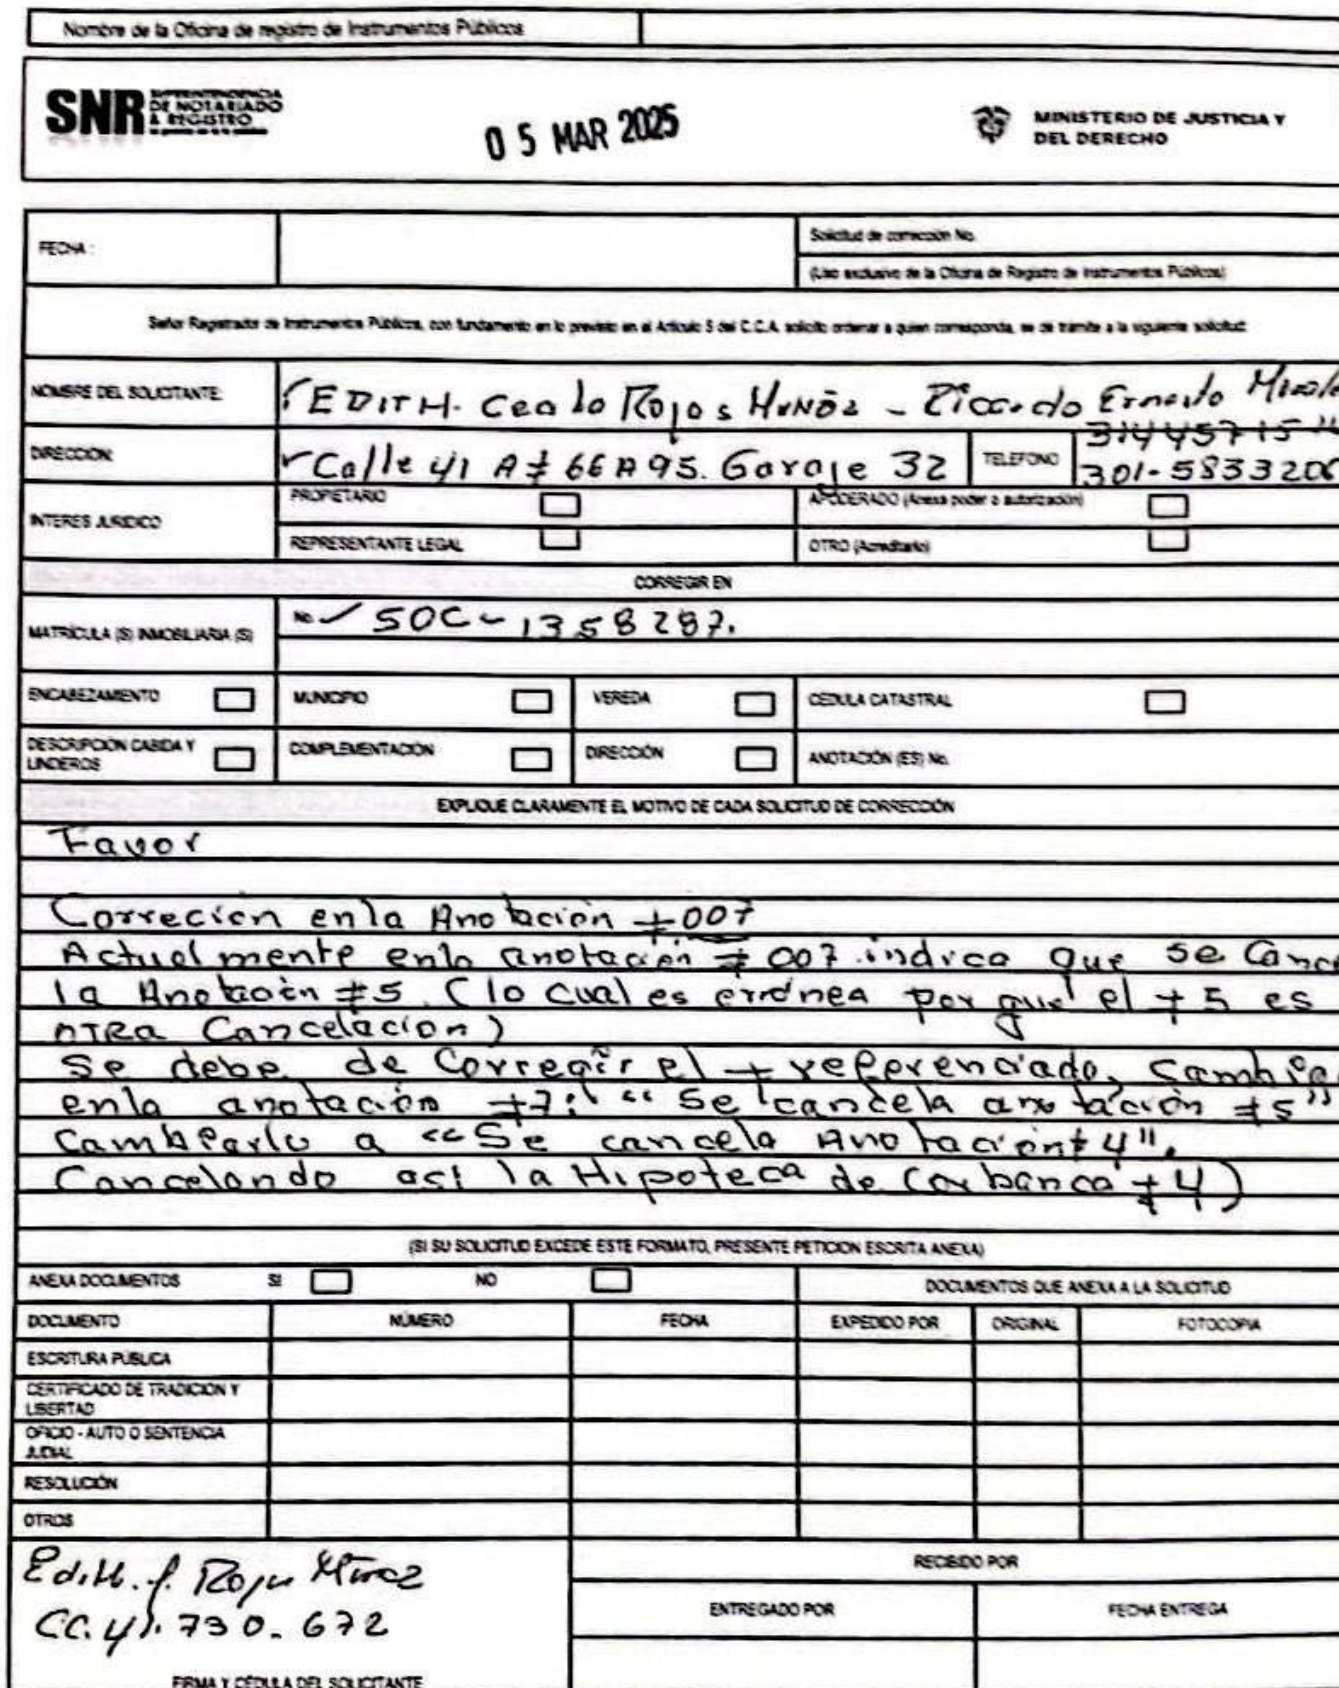 Nombre de la Oficina de registro de Instrumentos Públicos
SNR SUPERINTENDENCIA
DE NOTARIADO
& REGISTRO
05 MAR 2025
MINISTERIO DE JUSTICIA Y
DEL DERECHO
FECHA :
Solicitud de corrección No.
(Uso exclusivo de la Oficina de Registro de Instrumentos Públicos)
Señor Registrador de Instrumentos Públicos, con fundamento en lo previsto en el Artículo 5 del C.C.A. solicito ordenar a quien corresponda, se dé trámite a la siguiente solicitud:
NOMBRE DEL SOLICITANTE:
EDITH. Rojas Muñoz - Ernesto
DIRECCIÓN:
Calle 41 A # 66 A 95. Garaje 32
TELEFONO
301-583320
INTERES JURIDICO
PROPIETARIO
APODERADO (Anexa poder o autorización)
REPRESENTANTE LEGAL
OTRO (Acreditarlo)
CORREGIR EN
MATRÍCULA (S) INMOBILIARIA (S)
No. 50C-1358287.
ENCABEZAMIENTO
MUNICIPIO
VEREDA
CEDULA CATASTRAL
DESCRIPCIÓN CABIDA Y
LINDEROS
COMPLEMENTACIÓN
DIRECCIÓN
ANOTACIÓN (ES) No.
EXPLIQUE CLARAMENTE EL MOTIVO DE CADA SOLICITUD DE CORRECCIÓN
Favor
Correción en la Anotación #007
Actualmente en la anotación #007 indica que se Cance
la Anotación #5 (lo cual es errónea por que el #5 es
OTRA Cancelación)
Se debe de Corregir el # referenciado, Cambiar
en la anotación #7: "Se cancela anotación #5"
Cambiarlo a "Se cancela Anotación #4".
Cancelando asi la Hipoteca de Corbanca #4)
(SI SU SOLICITUD EXCEDE ESTE FORMATO, PRESENTE PETICION ESCRITA ANEXA)
ANEXA DOCUMENTOS
SI
NO
DOCUMENTOS QUE ANEXA A LA SOLICITUD
DOCUMENTO
NÚMERO
FECHA
EXPEDIDO POR
ORIGINAL
FOTOCOPIA
ESCRITURA PÚBLICA
CERTIFICADO DE TRADICIÓN Y
LIBERTAD
OFICIO - AUTO O SENTENCIA
JUDIAL
RESOLUCIÓN
OTROS
Edith. Rojas Muñoz
CC. 41.730.672
FIRMA Y CÉDULA DEL SOLICITANTE
RECIBIDO POR
ENTREGADO POR
FECHA ENTREGA